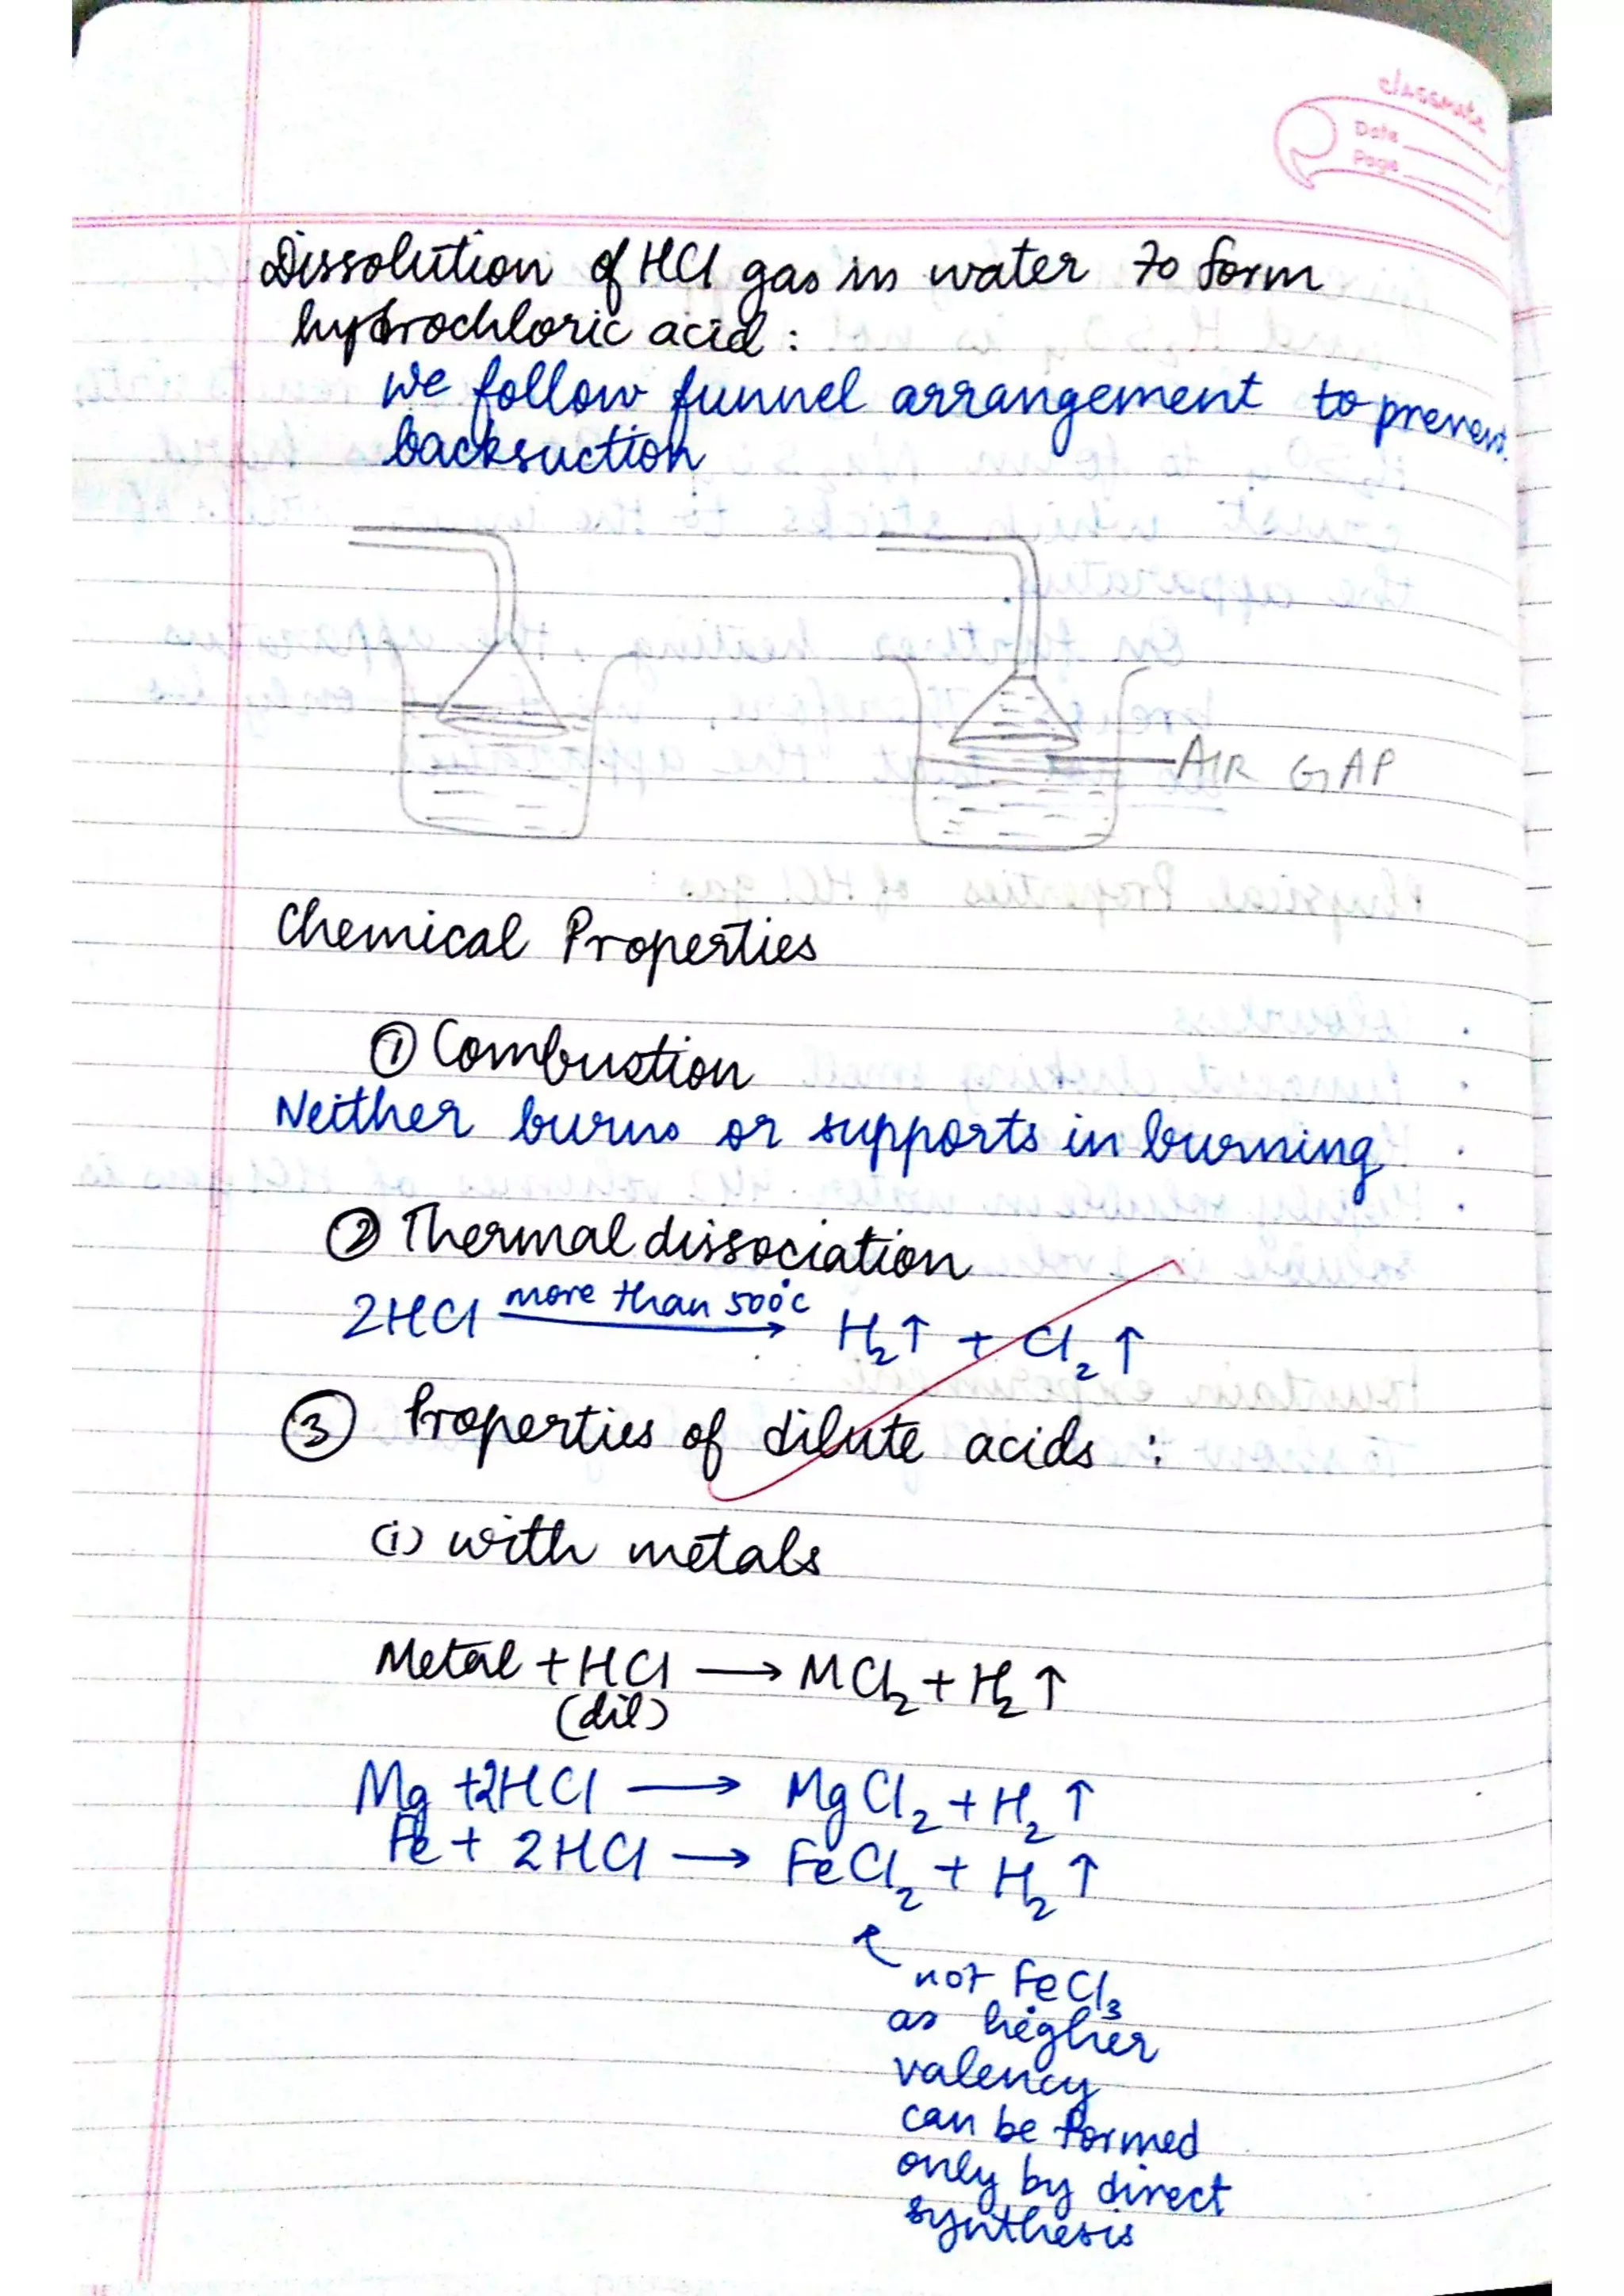 classmate
Date
Page
Dissolution of HCl gas in water to form
hydrochloric acid :
we follow funnel arrangement to prevent
backsuction
AIR GAP
Chemical Properties
① Combustion
Neither burns or supports in burning
② Thermal dissociation
2HCl more than 500°C → H₂↑ + Cl₂↑
③ Properties of dilute acids :
(i) with metals
Metal + HCl → MCl₂ + H₂↑
(dil)
Mg + 2HCl → MgCl₂ + H₂↑
Fe + 2HCl → FeCl₂ + H₂↑
not FeCl₃
as higher
valency
can be formed
only by direct
synthesis